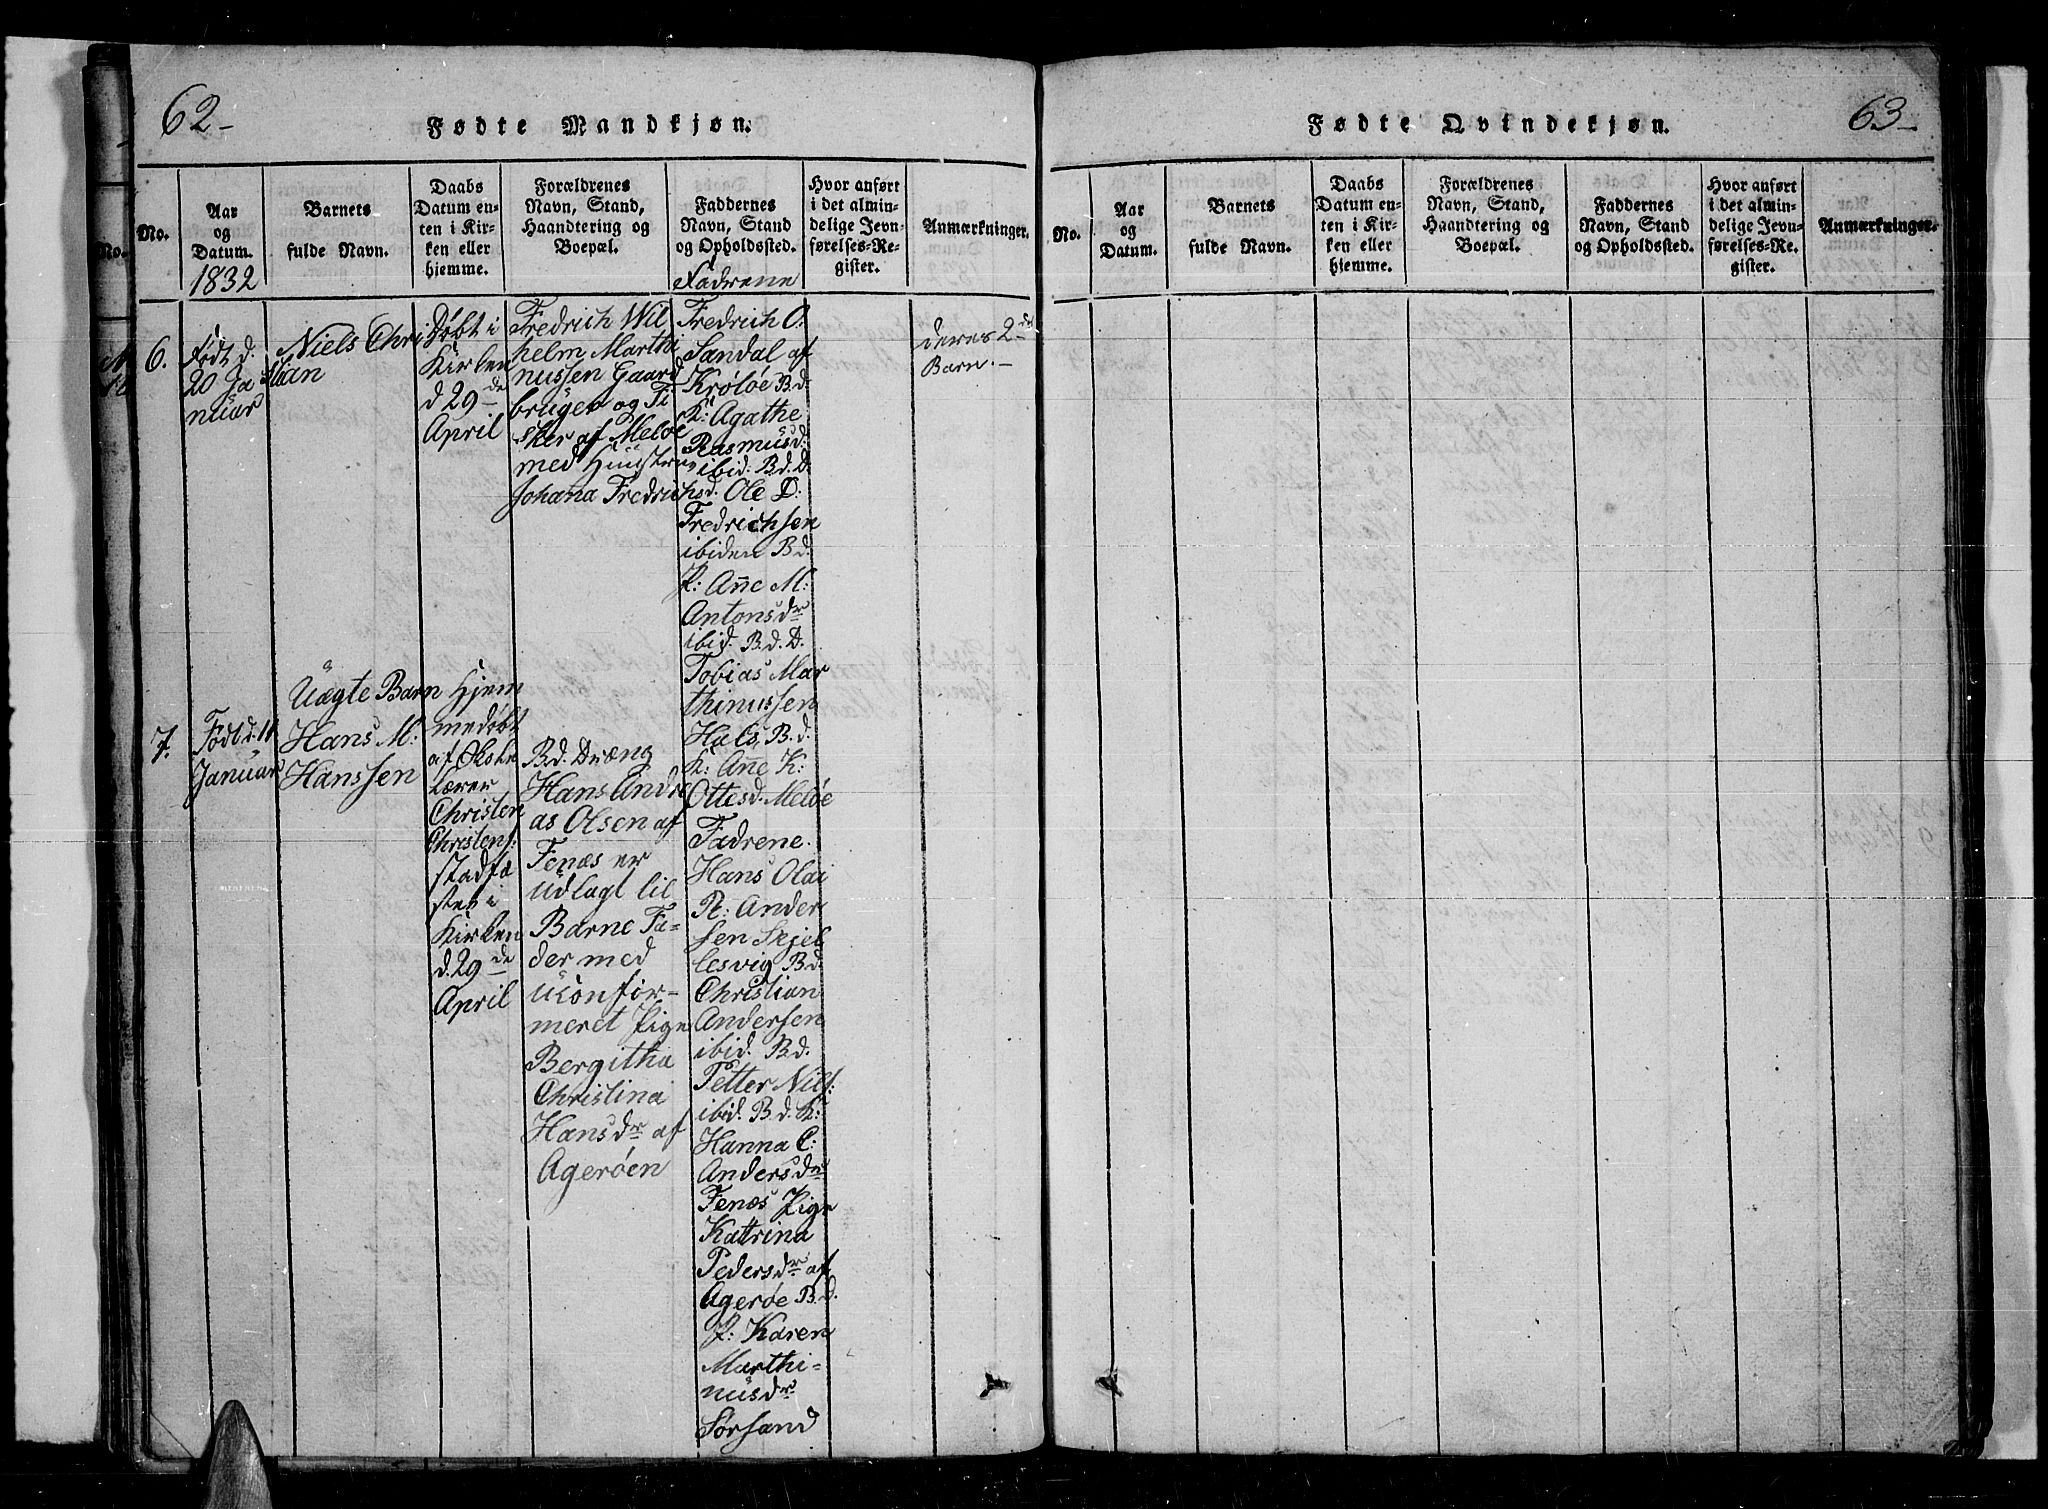 62-
Fødte Mandkjøn.
No.
Aar
og
Datum.
1832
Barnets
fulde Navn.
Daabs
Datum en-
ten i Kir-
ken eller
hjemme.
Forældrenes
Navn, Stand,
Haandtering og
Boepæl.
Faddernes
Navn, Stand
og Opholdssted.
Fadrene
Hvor anført
i det almin-
delige Jevn-
førelses-Re-
gister.
Anmærkninger.
6.
Født d.
20 Ja
nuar
Niels Chri
stian
Døbt i
Kirken
d 29de
April
Fredrich Wil
helm Marthi
nussen Gaard
bruger og Fi
sker af Meløe
med Huustrue
Johana Fredrichsd.
Fredrich O:
Sandal af
Krøløe B.d.
K: Agathe
Rasmusd:
ibid. B.d. D.
Ole D:
Fredrichsen
ibiden B.d.
P: Anne M:
Antonsdr
ibid. B.d. D.
Tobias Mar
thinussen
Hals B.d.
K: Anne K:
Ottesd. Meløe
deres 2de
Barn.-
7.
Født d. 11
Januar
Uægte Barn
Hans M:
Hanssen
Hjem
medøbt
af Skole
Lærer
Christen
Christens:
stadfæ
stet i
Kirken
d. 29de
April
B.d. Dræng
Hans Andre
as Olsen af
Fenæs er
udlagt til
Barne Fa-
der med
Ukonfir-
meret Pige
Bergitha
Christina
Hansdr af
Agerøen
Fadrene.
Hans Olai
P: Ander
sen Skjel
lesvig B.d.
Christian
Andersen
ibid. B.d.
Petter Nils:
ibid. B.d. K:
Hanna C:
Andersdr
Fenæs Pige
Katrina
Pedersdr af
Agerøe B.d.
P: Karen
Marthi-
nusdr
Sørsand
Fødte Qvindekjøn.
63-
No.
Aar
og
Datum.
Barnets
fulde Navn.
Daabs
Datum en-
ten i Kir-
ken eller
hjemme.
Forældrenes
Navn, Stand,
Haandtering og
Boepæl.
Faddernes
Navn, Stand
og Opholdssted.
Hvor anført
i det almin-
delige Jevn-
førelses-Re-
gister.
Anmærkninger.